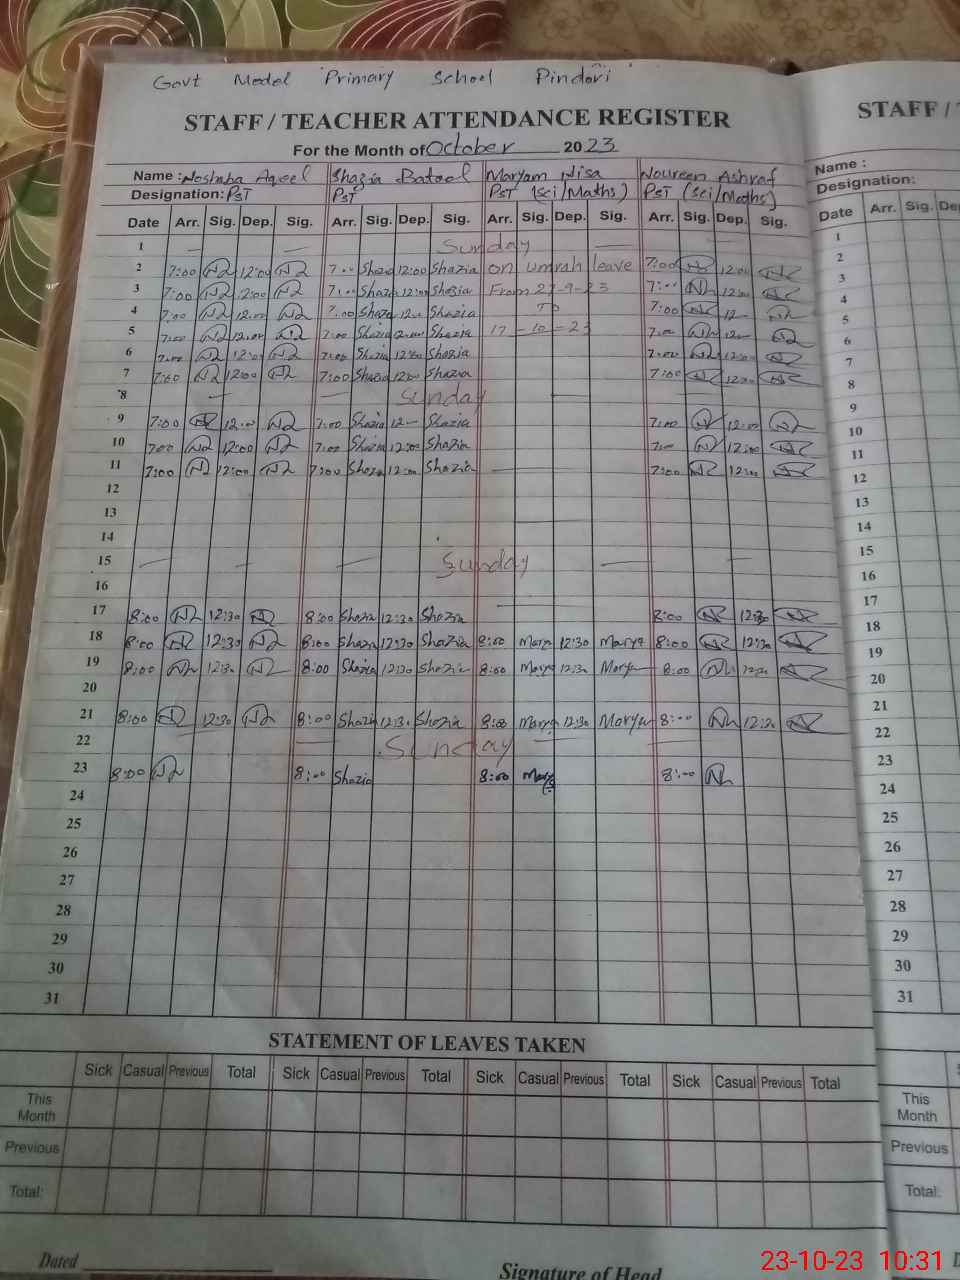 Govt Model Primary School Pindori
STAFF / TEACHER ATTENDANCE REGISTER
For the Month of October 2023
Name : Noshaba Aqeel Shazia Batool Maryam Nisa Noureen Ashraf
Designation: PST PST PST (Sci/Maths) PST (Sci/Maths)
Date Arr. Sig. Dep. Sig. Arr. Sig. Dep. Sig. Arr. Sig. Dep. Sig. Arr. Sig. Dep. Sig.
1 Sunday
2 7:00 12:00 7:00 Shazia 12:00 Shazia on umrah leave 7:00 12:00
3 7:00 12:00 7:00 Shazia 12:00 Shazia From 27-9-23 7:00 12:00
4 7:00 12:00 7:00 Shazia 12:00 Shazia To 7:00 12
5 7:00 12:00 7:00 Shazia 12:00 Shazia 17-10-23 7:00 12
6 7:00 12:00 7:00 Shazia 12:00 Shazia 7:00 12:00
7 7:00 12:00 7:00 Shazia 12:00 Shazia 7:00 12:00
8 Sunday
9 7:00 12:00 7:00 Shazia 12 Shazia 7:00 12:00
10 7:00 12:00 7:00 Shazia 12:00 Shazia 7:00 12:00
11 7:00 12:00 7:00 Shazia 12:00 Shazia 7:00 12:00
12
13
14
15 Sunday
16
17 8:00 12:30 8:00 Shazia 12:30 Shazia 8:00 12:30
18 8:00 12:30 8:00 Shazia 12:30 Shazia 8:00 Marya 12:30 Marya 8:00 12:30
19 8:00 12:30 8:00 Shazia 12:30 Shazia 8:00 Marya 12:30 Marya 8:00 12:30
20
21 8:00 12:30 8:00 Shazia 12:30 Shazia 8:00 Marya 12:30 Marya 8:00 12:30
22 Sunday
23 8:00 8:00 Shazia 8:00 Marya 8:00
24
25
26
27
28
29
30
31
STATEMENT OF LEAVES TAKEN
Sick Casual Previous Total Sick Casual Previous Total Sick Casual Previous Total Sick Casual Previous Total
This Month
Previous
Total:
Dated
Signature of Head
STAFF /
Name :
Designation:
Date Arr. Sig.
1
2
3
4
5
6
7
8
9
10
11
12
13
14
15
16
17
18
19
20
21
22
23
24
25
26
27
28
29
30
31
This Month
Previous
Total:
23-10-23 10:31